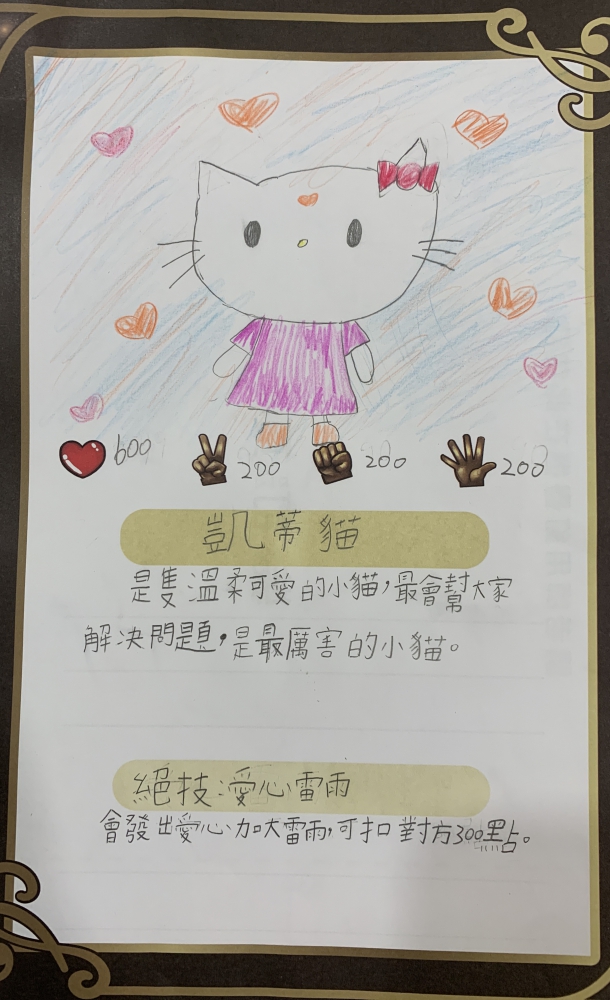 600
200
200
200
凱蒂貓
是隻溫柔可愛的小貓,最會幫大家
解決問題,是最厲害的小貓。
絕技:愛心雷雨
會發出愛心加大雷雨,可扣對方300點。